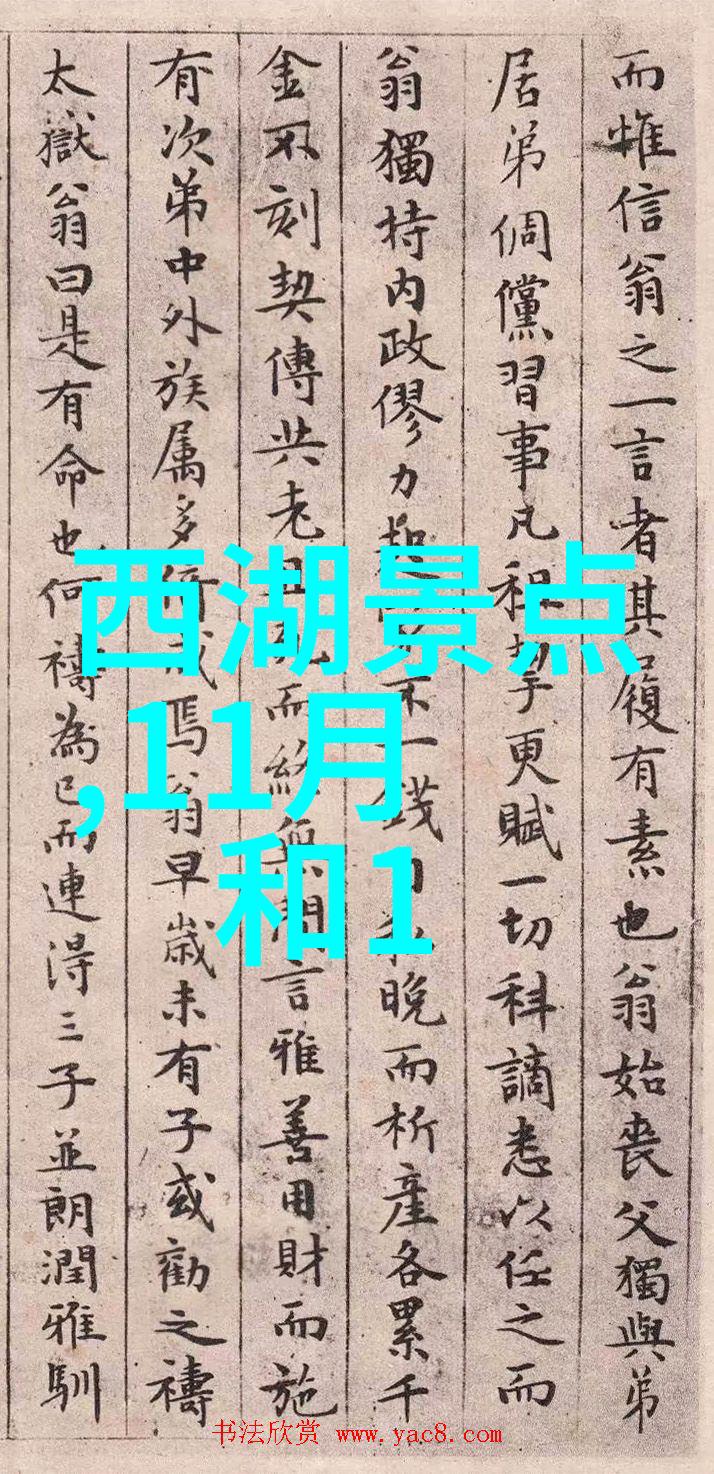 而惟信翁之一言者其履有素也翁始喪父獨與弟
居弟倜儻習事凡租挈更賦一切科謫悉以任之而
翁獨持内政僇力起不一錢自私晚而析產各累千
金不刻契傳共老且死而終無間言雅善用財而施
有次弟中外族属多倚成焉翁早歲未有子或勸之禱
太嶽翁曰是有命也何禱為已而連得三子並朗潤雅馴
西湖景点
,11月
和1
书法欣赏 www.yac8.com